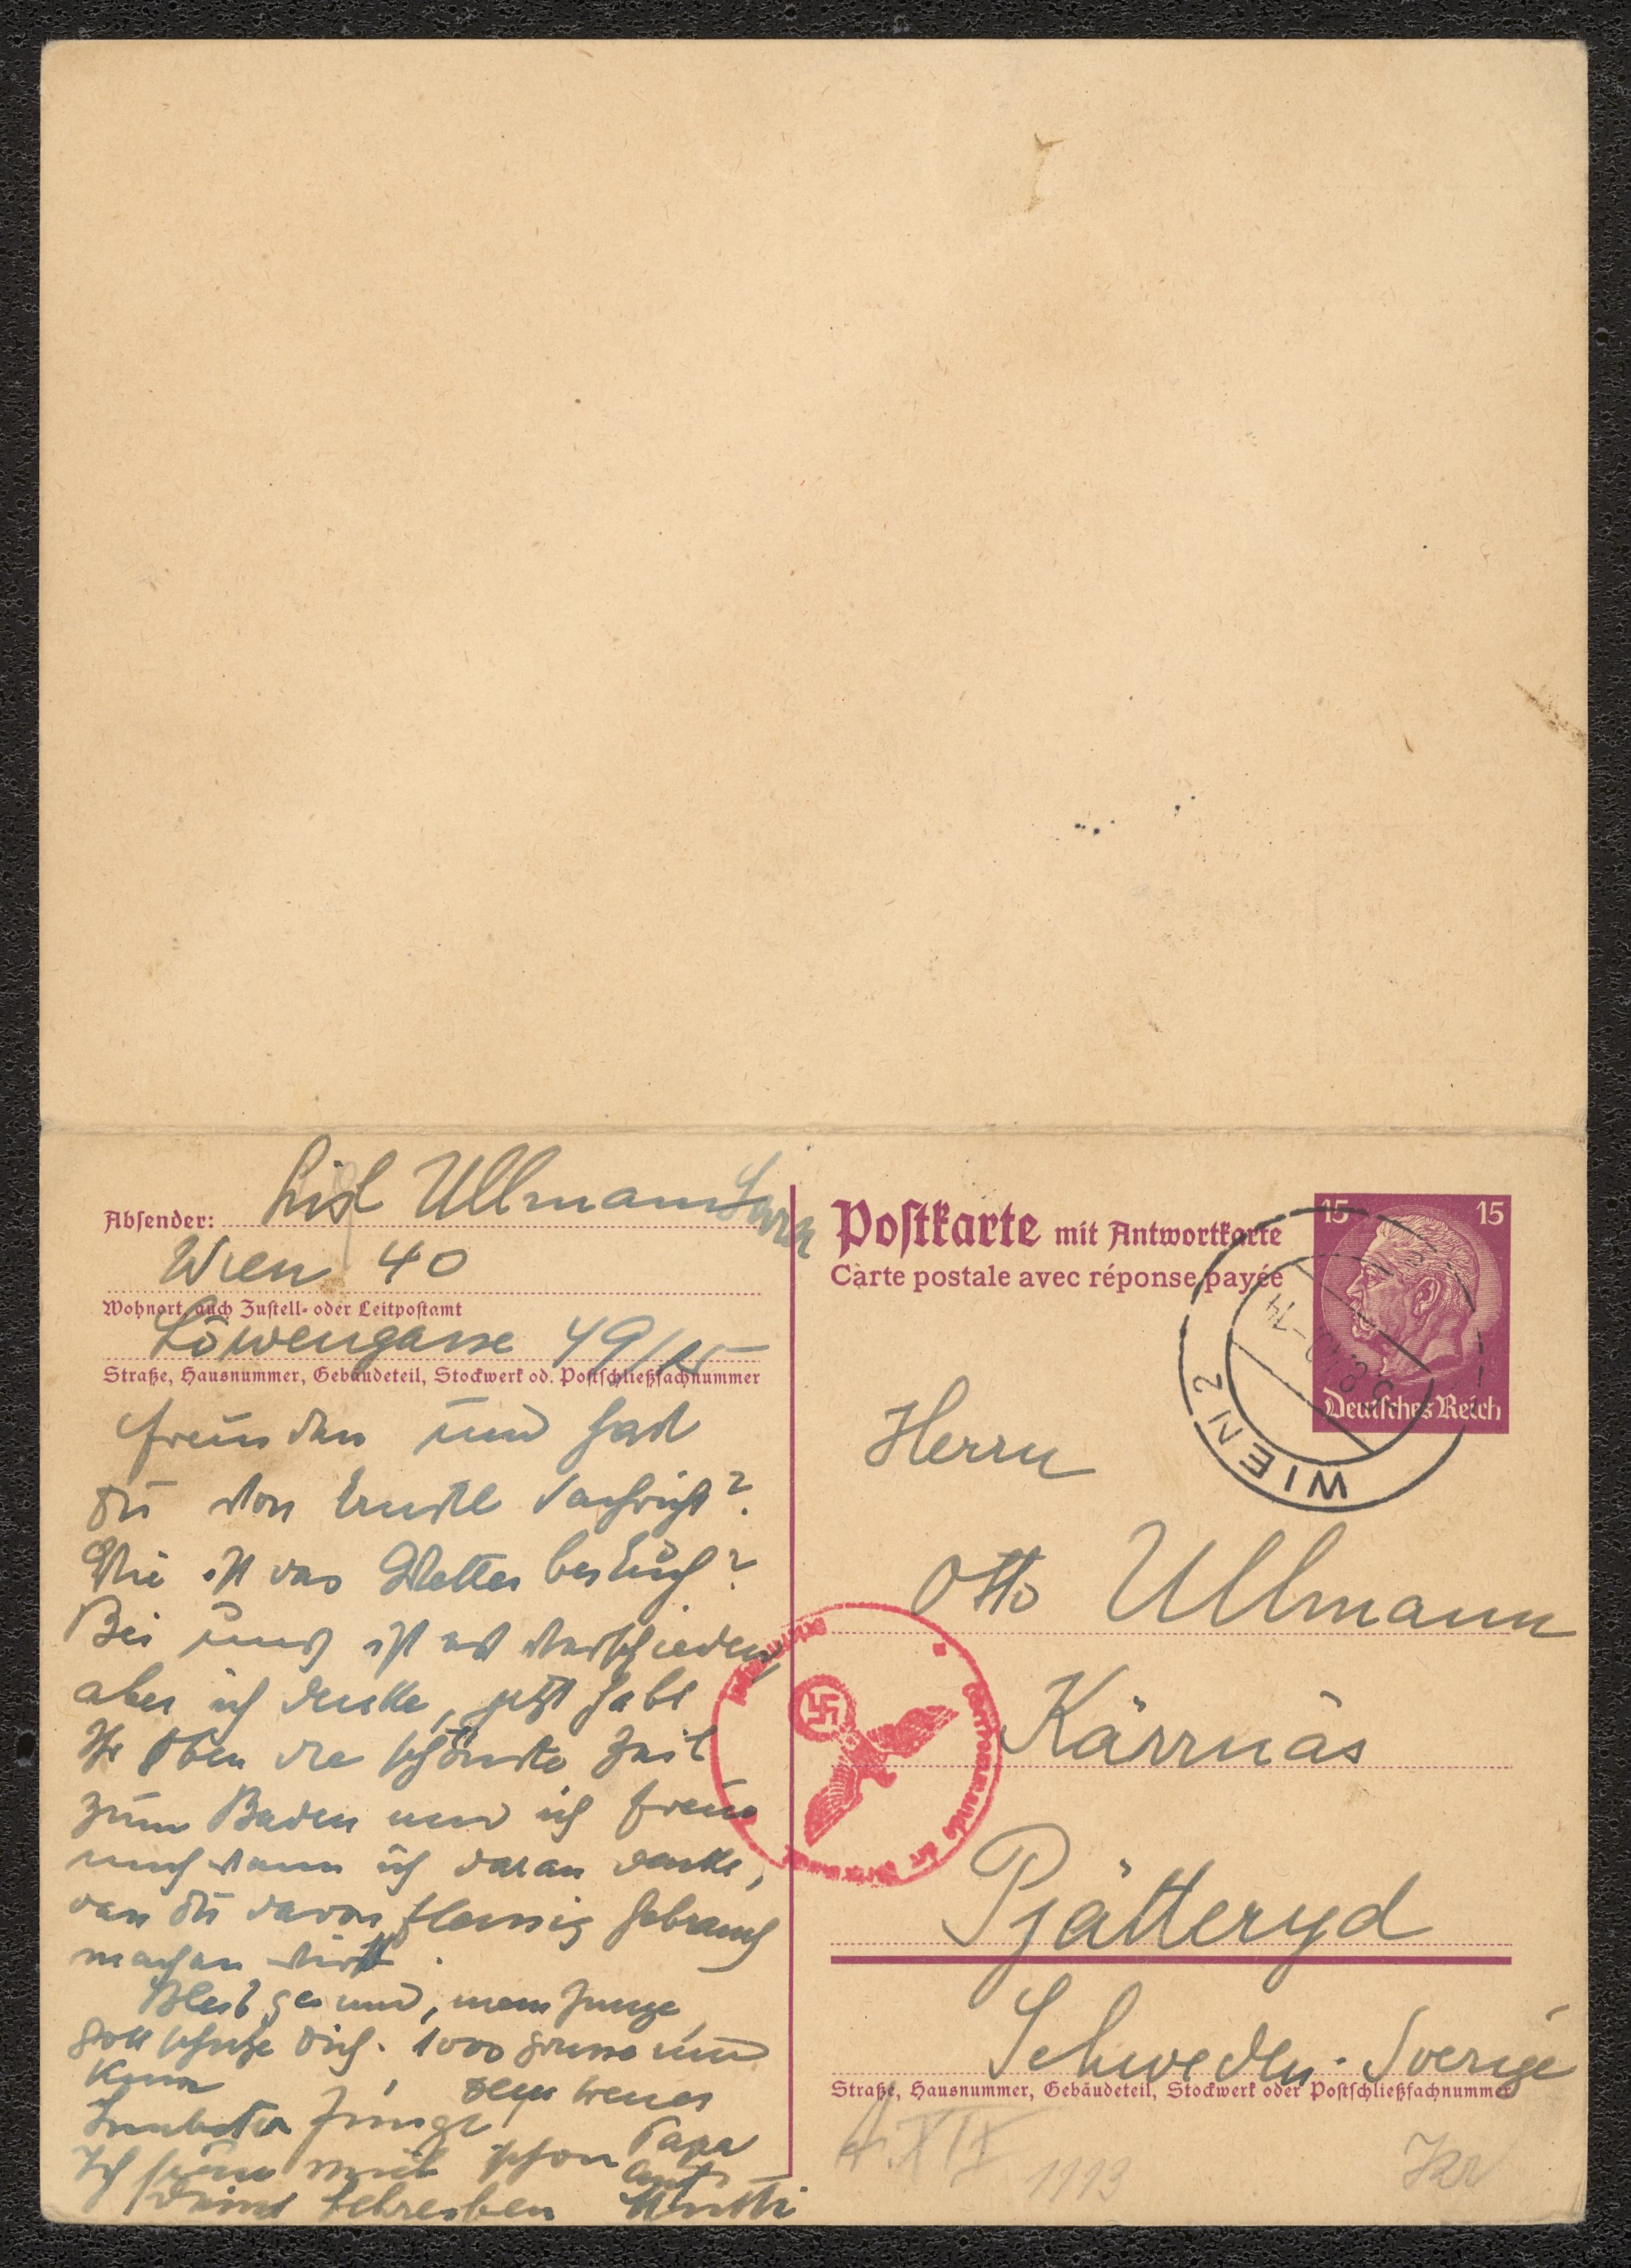 Lisl Ullmann Sara
Absender:
Wien 40
Wohnort, auch Zustell- oder Leitpostamt
Löwengasse 49/15
Straße, Hausnummer, Gebäudeteil, Stockwerk od. Postschließfachnummer
Freunden und hast
Du von Nachricht?
Wie ist das Wetter bei Euch?
Bei uns ist es verschieden,
aber ich denke, jetzt habt
Ihr eben die schönste Zeit
zum Baden und ich freue
mich wenn ich daran denke,
dass Du davon fleissig Gebrauch
machen wirst.
Bleib gesund, mein Junge,
Gott schütze Dich. 1000 Grüsse und
Küsse Dein treuer
Innbester Junge Papa
Ich schon auf
Deine Mutti
Postkarte mit Antwortkarte
Carte postale avec réponse payée
15 15
Deutsches Reich
WIEN 2
Herrn
Otto Ullmann
Kärrnäs
Pjätteryd
Schweden. Sverige
Straße, Hausnummer, Gebäudeteil, Stockwerk oder Postschließfachnummer
A. XIX 1113